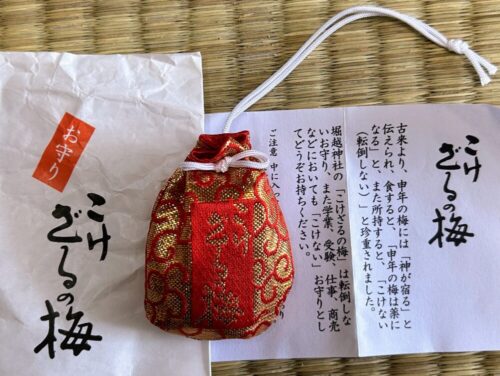 お守り
こけ
ざるの梅
こけ
ざるの梅
古来より、申年の梅には「神が宿る」と
伝えられ、食すると、「申年の梅は薬に
なる」と、また所持すると、「こけない
(転倒しない)」と珍重されました。
堀越神社の「こけざるの梅」は転倒しな
いお守り、また学業、受験、仕事、商売
などにおいても「こけない」お守りとし
てどうぞお持ちください。
ご注意 中に入っ